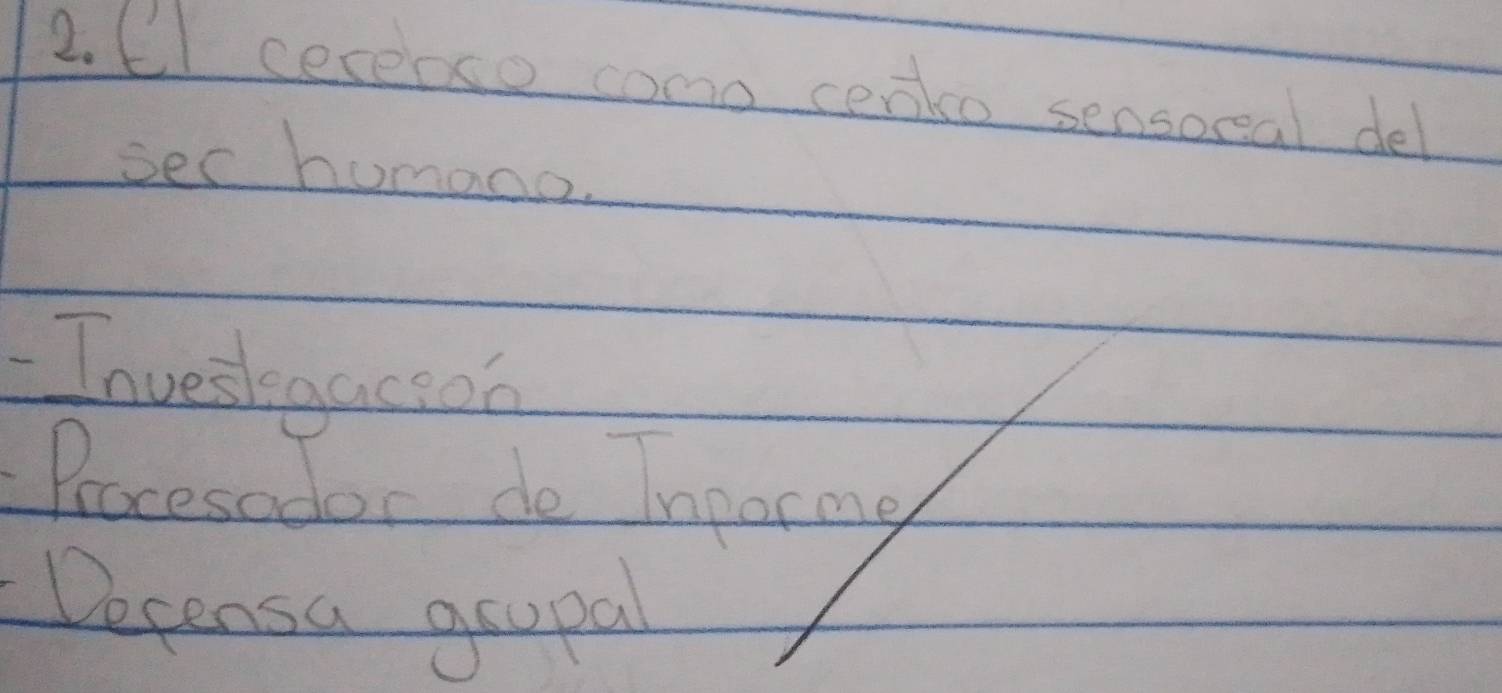 2. El cerebro como centro sensoreal del
ser humano.
- Investigación
- Procesador de Informe
- Defensa grupal